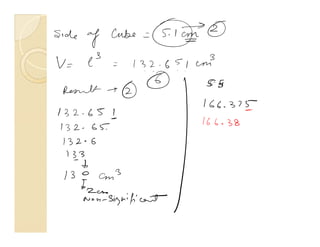 Side of Cube = 5.1 cm → 2
V = l³ = 132.651 cm³
6
Result → 2
132.651
132.65
132.6
133
130 cm³
Zero
Non-Significant
55
166.375
166.38